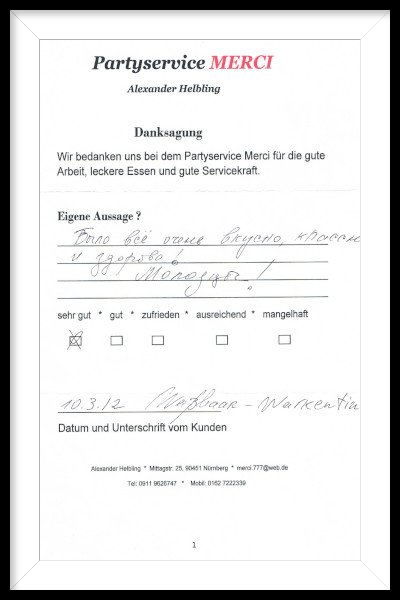 Partyservice MERCI
Alexander Helbling
Danksagung
Wir bedanken uns bei dem Partyservice Merci für die gute
Arbeit, leckere Essen und gute Servicekraft.
Eigene Aussage ?
Было всё очень вкусно, классно
и здорово!
Молодцы!
sehr gut * gut * zufrieden * ausreichend * mangelhaft
10.3.12 – Warkentin
Datum und Unterschrift vom Kunden
Alexander Helbling * Mittagstr. 25, 90451 Nürnberg * merci.777@web.de
Tel: 0911 9626747 * Mobil: 0162 7222339
1